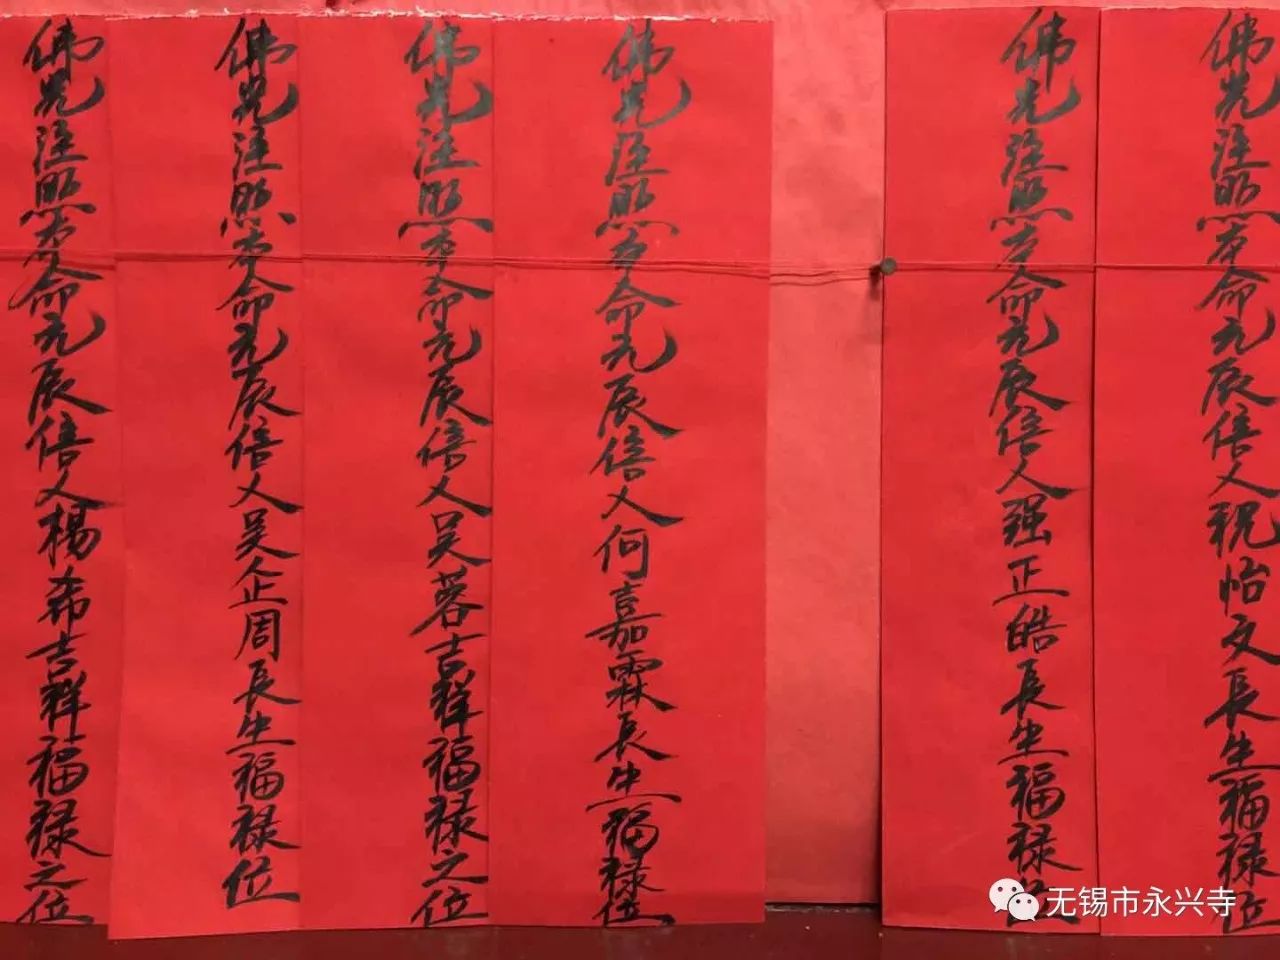 佛光注照本命元辰信人祝怡文長生福禄位
佛光注照本命元辰信人强正皓長生福禄位
佛光注照本命元辰信人何嘉霖長生福禄位
佛光注照本命元辰信人吴蓉吉祥福禄之位
佛光注照本命元辰信人吴企周長生福禄位
佛光注照本命元辰信人楊希吉祥福禄之位
无锡市永兴寺